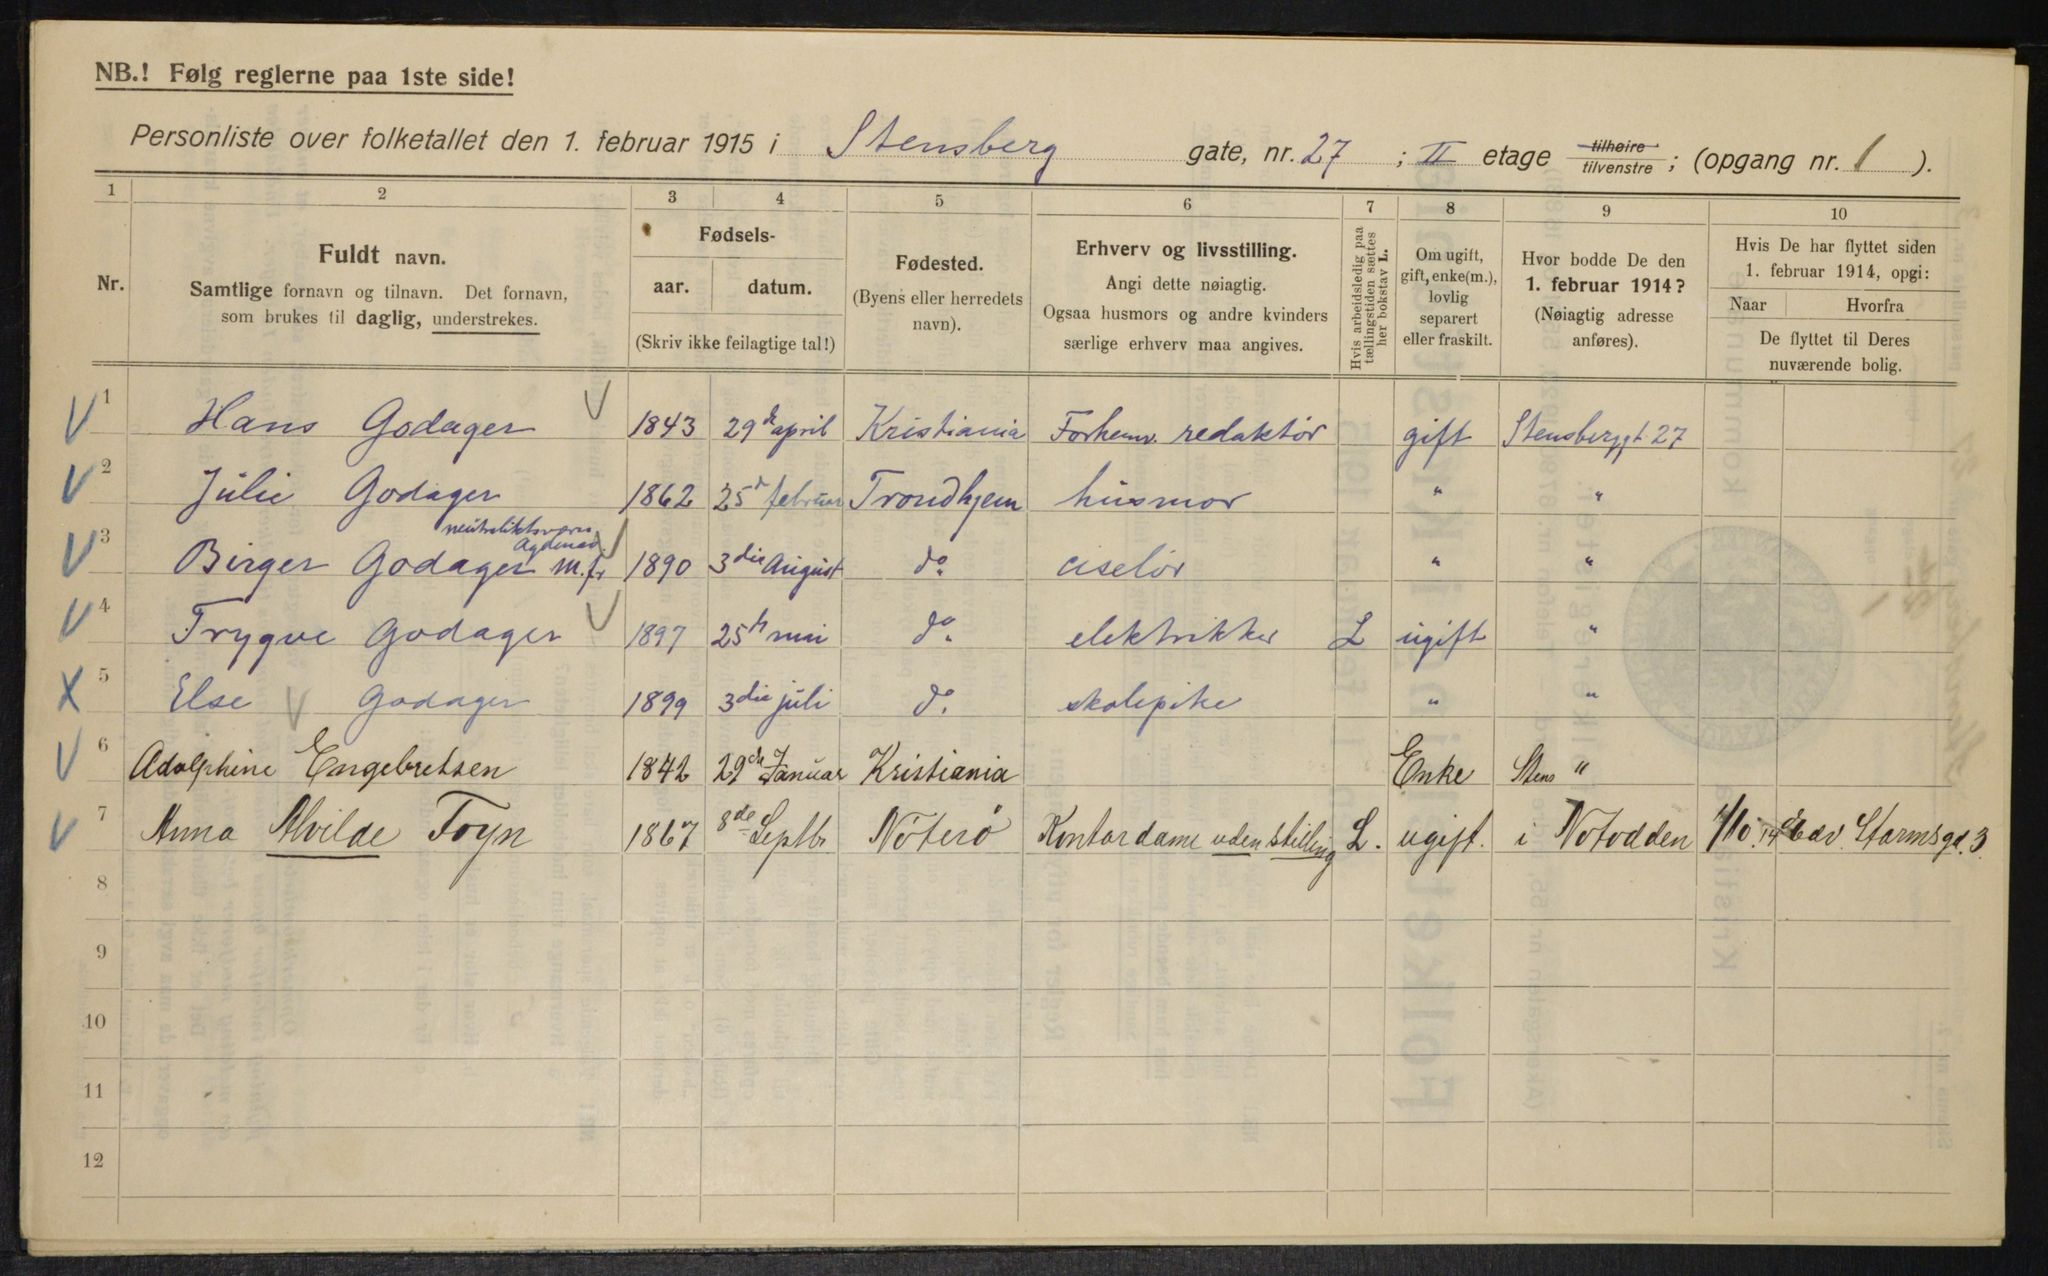 NB.! Følg reglerne paa 1ste side!
Personliste over folketallet den 1. februar 1915 i Stensberg gate, nr. 27 ; II etage tilhøire / tilvenstre ; (opgang nr. 1 ).
1 2 3 4 5 6 7 8 9 10
Nr.
Fuldt navn.
Samtlige fornavn og tilnavn. Det fornavn,
som brukes til daglig, understrekes.
Fødsels-
aar. datum.
(Skriv ikke feilagtige tal!)
Fødested.
(Byens eller herredets
navn).
Erhverv og livsstilling.
Angi dette nøiagtig.
Ogsaa husmors og andre kvinders
særlige erhverv maa angives.
Hvis arbeidsledig paa
tællingstiden sættes
her bokstav L.
Om ugift,
gift, enke(m.),
lovlig
separert
eller fraskilt.
Hvor bodde De den
1. februar 1914?
(Nøiagtig adresse
anføres).
Hvis De har flyttet siden
1. februar 1914, opgi:
Naar Hvorfra
De flyttet til Deres
nuværende bolig.
1 Hans Godager 1843 29de april Kristiania Forhenv. redaktør gift Stensberggt. 27
2 Julie Godager 1862 25d februar Trondhjem husmor " "
3 Birger Godager m.fr 1890 3die August do. ciselør " "
4 Trygve Godager 1897 25 mai do. elektriker L ugift "
5 Else Godager 1899 3die juli do. skolepike " "
6 Adolphine Engebretsen 1842 29de Januar Kristiania Enke Stens "
7 Anna Alvilde Foyn 1867 8de Septbr Nöterö Kontordame uden stilling L. ugift. i Notodden 1/10. 14 Edv. Stormsgd. 3.
8
9
10
11
12